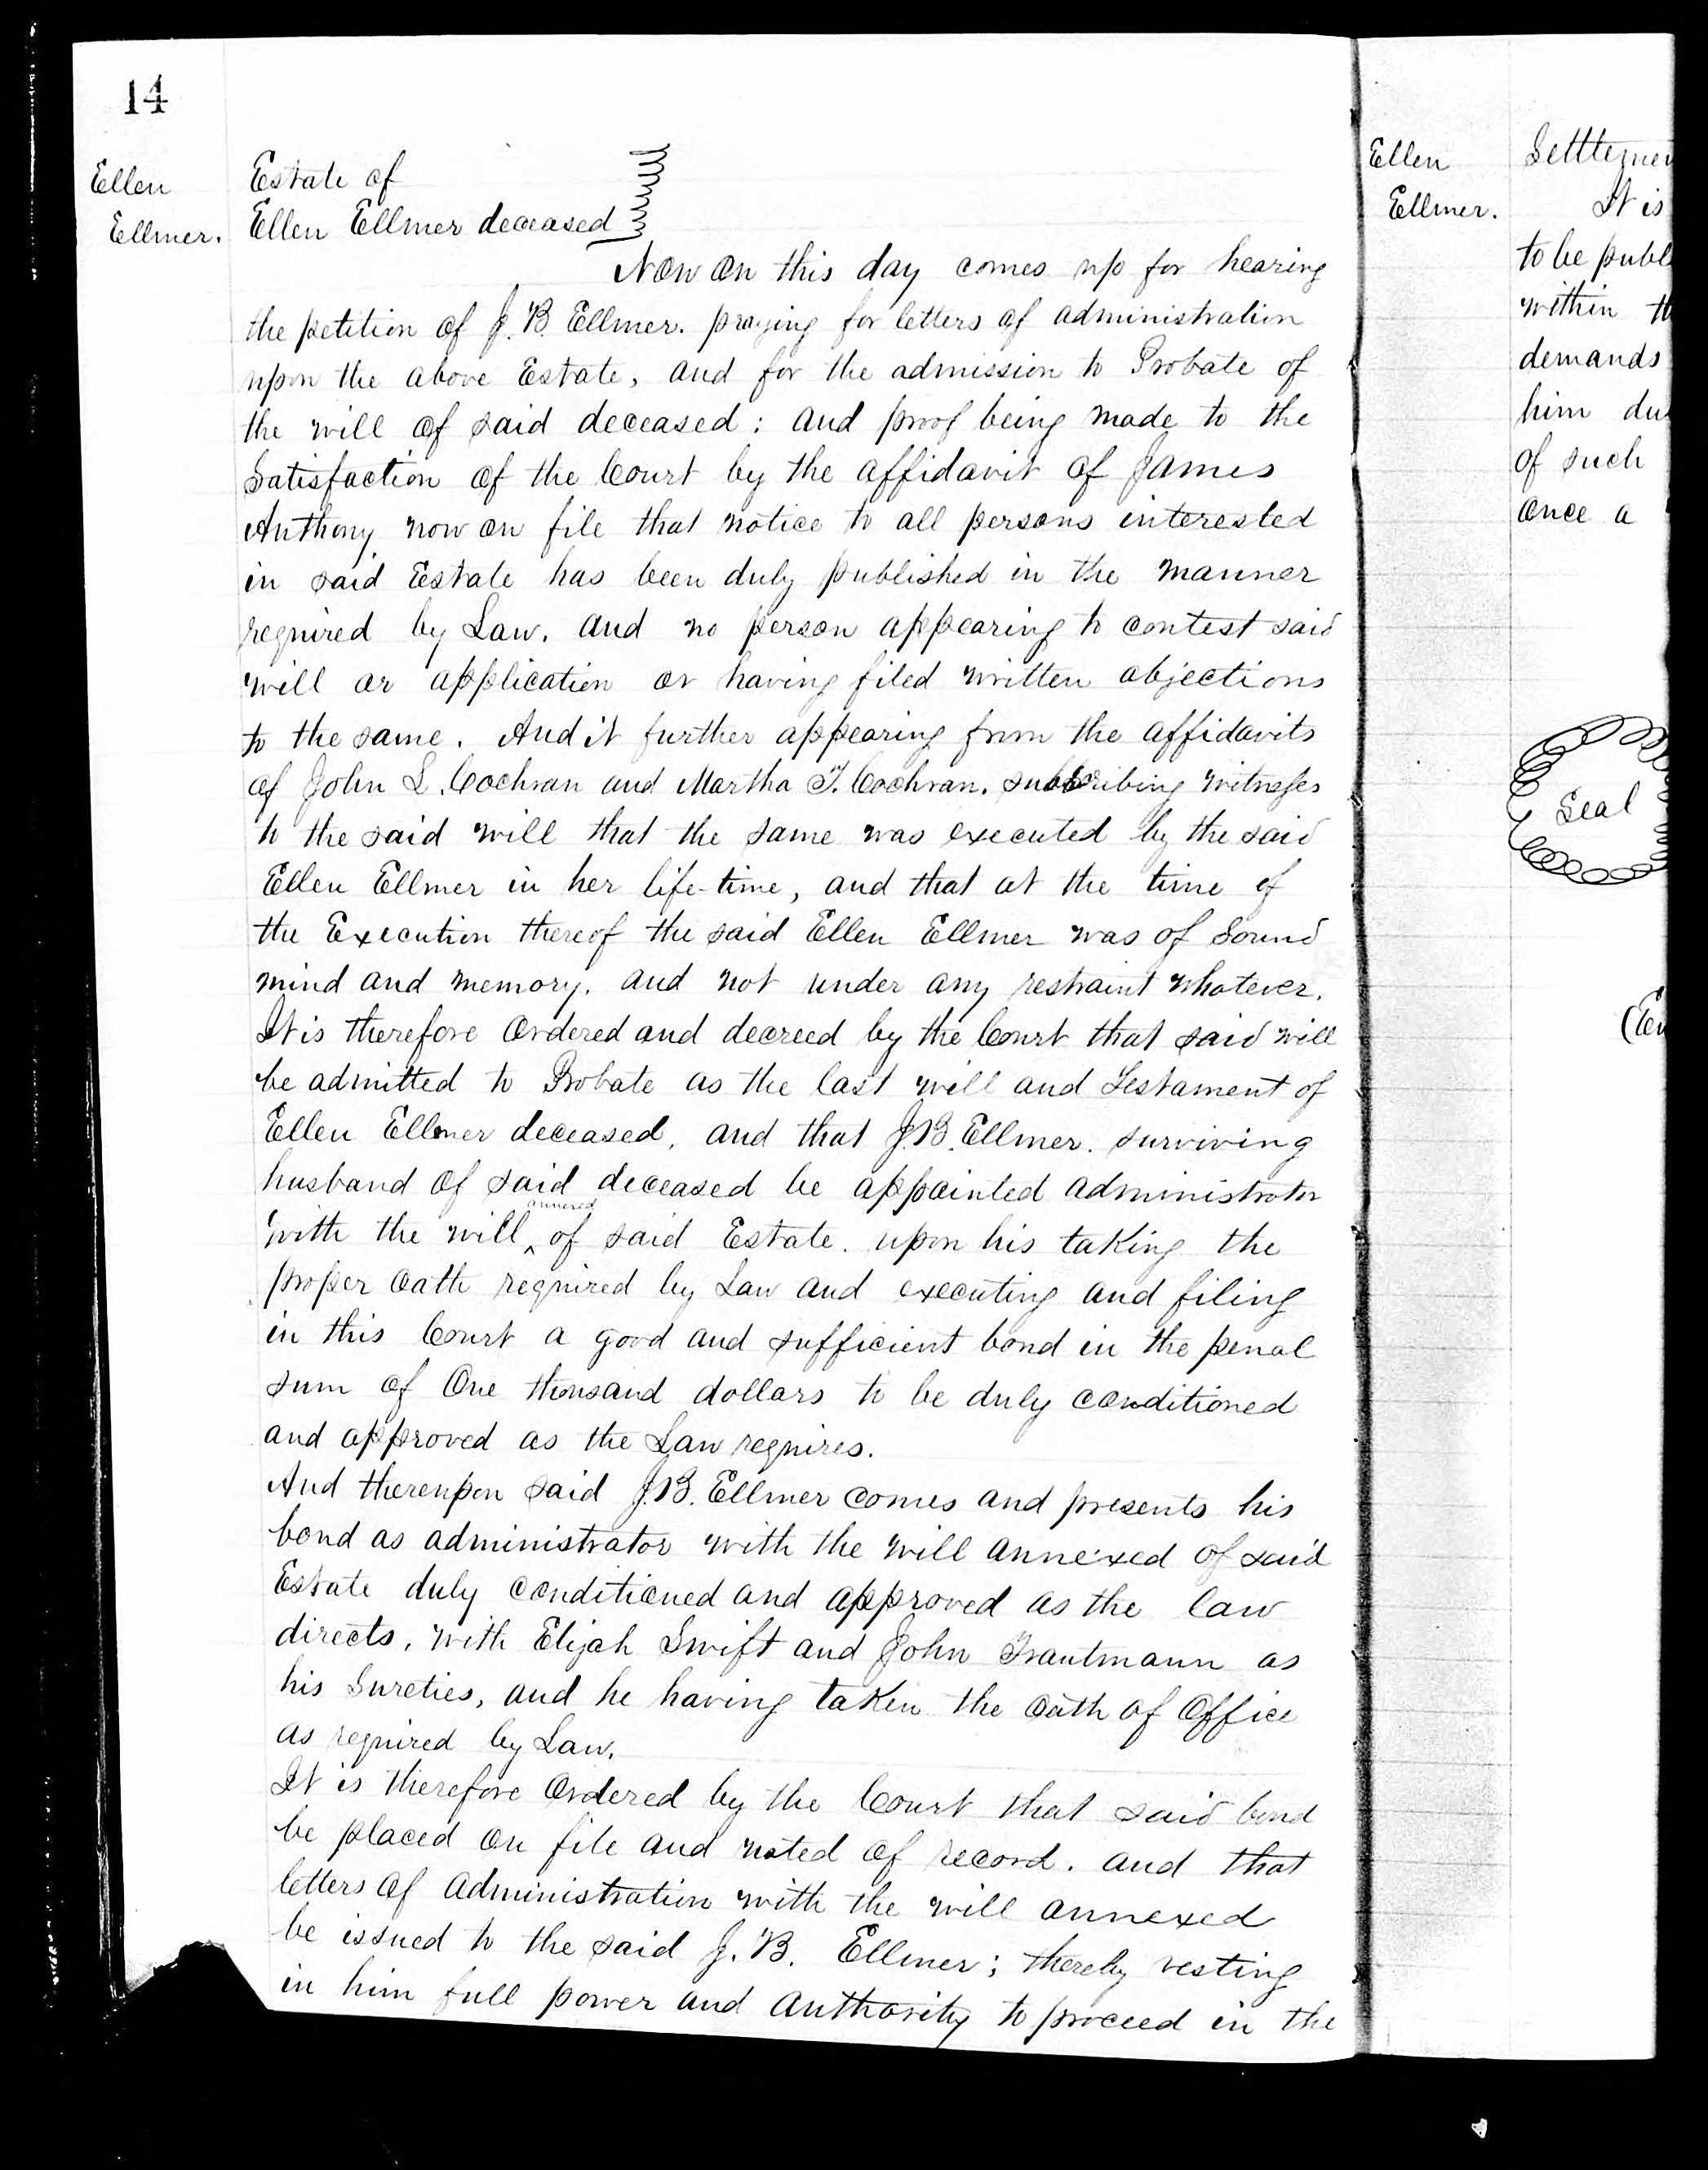 14
Ellen
Ellmer.
Estate of
Ellen Ellmer deceased
Now on this day comes up for hearing
the petition of J. B. Ellmer. praying for letters of administration
upon the above Estate, and for the admission to Probate of
the will of said deceased: and proof being made to the
Satisfaction of the Court by the affidavit of James
Anthony now on file that notice to all persons interested
in said Estate has been duly published in the manner
required by Law. and no person appearing to contest said
will or application or having filed written objections
to the same. And it further appearing from the affidavits
of John L. Cochran and Martha T. Cochran. subscribing witnesses
to the said will that the same was executed by the said
Ellen Ellmer in her life-time, and that at the time of
the Execution thereof the said Ellen Ellmer was of Sound
mind and memory. and not under any restraint whatever.
It is therefore Ordered and decreed by the Court that said will
be admitted to Probate as the last will and Testament of
Ellen Ellmer deceased. and that J. B. Ellmer. surviving
husband of said deceased be appointed administrator
with the will ^annexed of said Estate. upon his taking the
proper Oath required by Law and executing and filing
in this Court a good and sufficient bond in the penal
sum of One thousand dollars to be duly conditioned
and approved as the Law requires.
And thereupon said J. B. Ellmer comes and presents his
bond as administrator with the will annexed of said
Estate duly conditioned and approved as the law
directs, with Elijah Swift and John Trautmann as
his Sureties, and he having taken the Oath of Office
as required by Law.
It is therefore Ordered by the Court that said bond
be placed on file and noted of record. and that
letters of administration with the will annexed
be issued to the said J. B. Ellmer; thereby vesting
in him full power and authority to proceed in the
Ellen
Ellmer.
Settlemen
It is
to be publ
within th
demands
him du
of such
once a
Seal